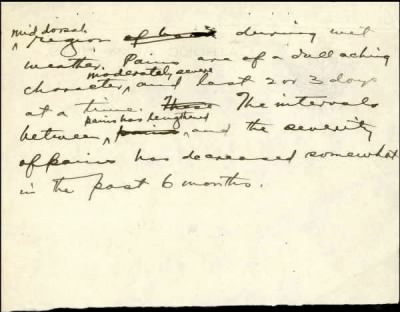 mid dorsal
region of back during wet
weather. Pains are of a dull aching
moderately severe
character, and last 2 or 3 days
at a time. These The intervals
pains has lengthened
between pains and the severity
of pains has decreased somewhat
in the past 6 months.